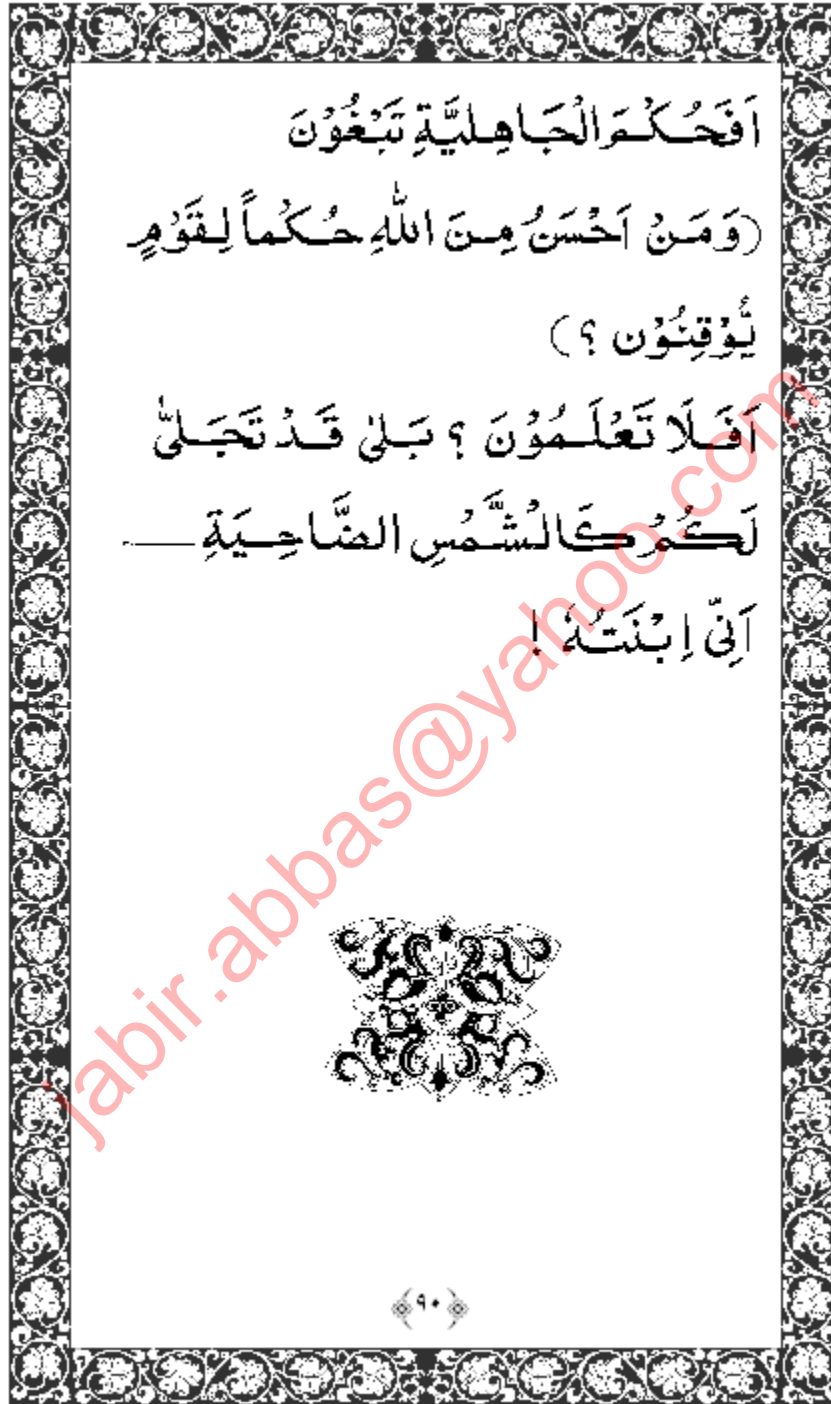 اَفَحُكْمَ الْجَاهِليَّةِ تَبْغُوْنَ
(وَمَنْ اَحْسَنُ مِنَ اللّٰهِ حُكْماً لِقَوْمٍ
يُّوْقِنُوْن ؟)
اَفَلَا تَعْلَمُوْنَ ؟ بَلٰى قَدْ تَجَلىّٰ
لَكُمْ كَالْشَّمْسِ الضَّاحِيَةِ ——
اَنِّىْ اِبْنَتُهٗ !
jabir.abbas@yahoo.com
۹۰